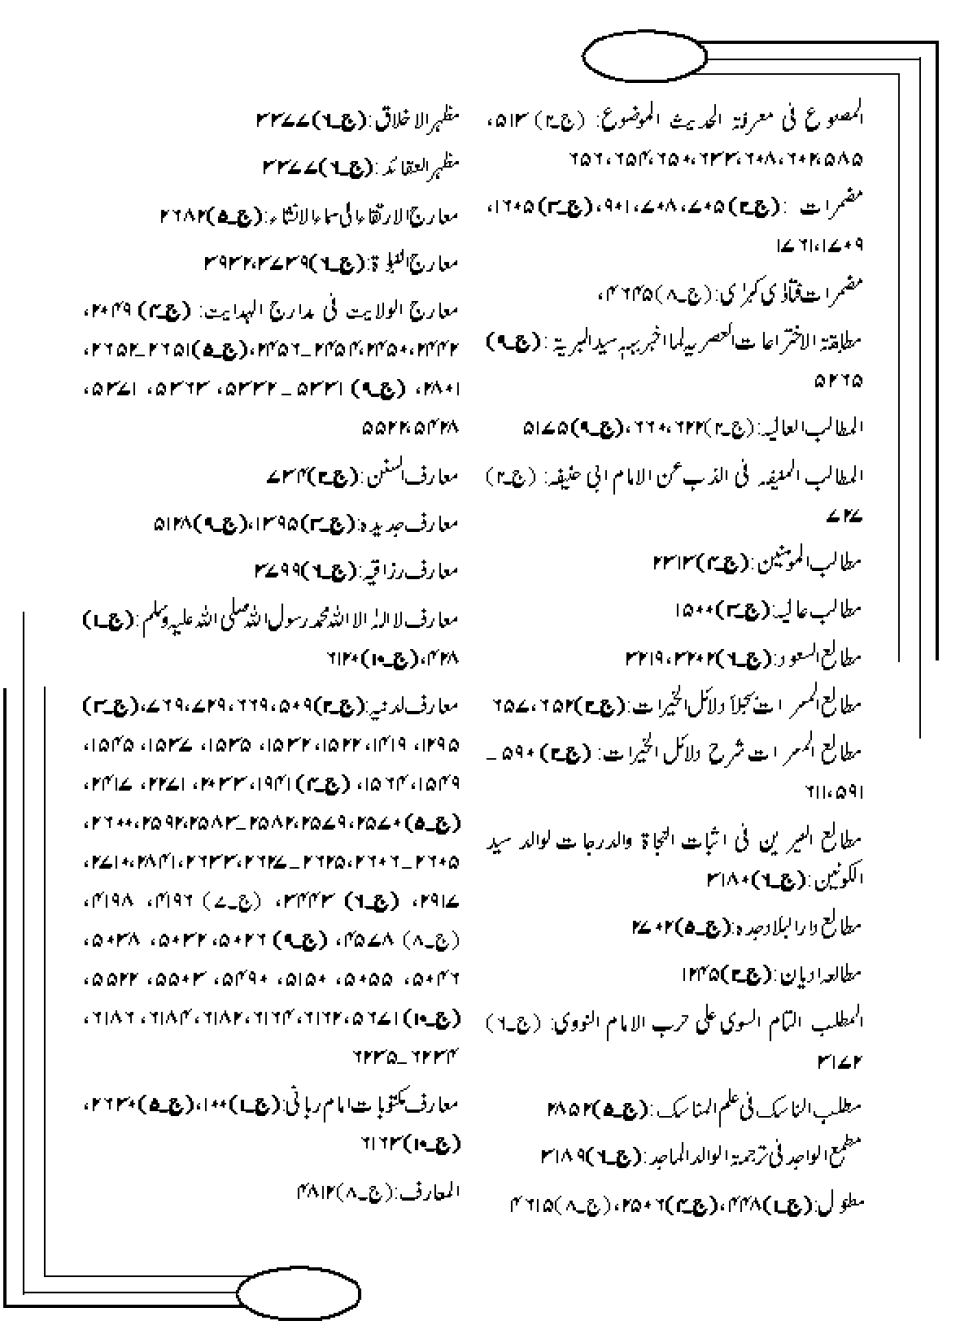 المصنوع فی معرفۃ الحدیث الموضوع: (ج۔۲) ۵۱۳،
۵۸۵، ۶۰۲، ۶۰۸، ۶۳۳، ۶۵۰، ۶۵۴، ۶۵۶
مضمرات :(ج۔۲)۷۰۵، ۷۰۸، ۹۰۱،(ج۔۳)۱۶۰۵،
۱۷۰۹، ۱۷۶۱
مضمرات فتاوٰی کبرٰی:(ج۔۸)۴۶۴۵،
مطابقۃ الاختراعات العصریہ لما اخبر بہ سید البریۃ :(ج۔۹)
۵۲۶۵
المطالب العالیہ:(ج۔۲)۶۲۲، ۶۶۰،(ج۔۹)۵۱۷۵
المطالب المنیفہ فی الذب عن الامام ابی حنیفہ: (ج۔۲)
۷۲۷
مطالب المومنین:(ج۔۴)۲۳۱۳
مطالب عالیہ:(ج۔۳)۱۵۰۰
مطالع السعود:(ج۔۶)۳۲۰۲، ۳۲۱۹
مطالع المسرات بجلاء دلائل الخیرات:(ج۔۲)۶۵۲، ۶۵۷
مطالع المسرات شرح دلائل الخیرات: (ج۔۲)۵۹۰ ـ
۵۹۱، ۶۱۱
مطالع النیرین فی اثبات النجاۃ والدرجات لوالد سید
الکونین:(ج۔۶)۳۱۸۰
مطالع دارالبلاوجدہ:(ج۔۵)۲۷۰۲
مطالعہ ادیان:(ج۔۲)۱۲۴۵
المطلب التام السوی علی حزب الامام النووی: (ج۔۶)
۳۱۷۲
مطلب الناسک فی علم المناسک:(ج۔۵)۲۸۵۲
مطمع الواجد فی ترجمۃ الوالد الماجد:(ج۔۶)۳۱۸۹
مطول:(ج۔۱)۴۴۸،(ج۔۴)۲۵۰۶،(ج۔۸)۴۶۱۵
مظہر الاخلاق:(ج۔۶)۳۳۷۷
مظہر العقائد:(ج۔۶)۳۳۷۷
معارج الارتقاء الی سماء الانشاء:(ج۔۵)۲۶۸۲
معارج النبوۃ:(ج۔۶)۳۷۳۹، ۳۹۳۲
معارج الولایت فی مدارج الہدایت: (ج۔۴)۲۰۴۹،
۲۴۴۲، ۲۴۵۰، ۲۴۵۴ـ۲۴۵۶،(ج۔۵)۲۶۵۱ـ۲۶۵۲،
۲۸۰۱، (ج۔۹) ۵۳۳۱ـ۵۳۳۲، ۵۳۶۳، ۵۳۷۱،
۵۴۲۸، ۵۵۲۲
معارف السنن:(ج۔۲)۷۳۴
معارف جدیدہ:(ج۔۳)۱۳۹۵،(ج۔۹)۵۱۲۸
معارف رزاقیہ:(ج۔۶)۳۷۹۹
معارف لا الہٰ الا اللہ محمد رسول اللہ صلی اللہ علیہ وسلم:(ج۔۱)
۴۲۸،(ج۔۱۰)۶۱۲۰
معارف لدنیہ:(ج۔۲)۵۰۹، ۶۶۹، ۷۲۹، ۷۶۹،(ج۔۳)
۱۲۹۵، ۱۴۱۹، ۱۵۲۲، ۱۵۳۲، ۱۵۳۵، ۱۵۳۷، ۱۵۴۵،
۱۵۴۹، ۱۵۶۴، (ج۔۴) ۱۹۴۱، ۲۰۳۳، ۲۲۷۱، ۲۴۱۷،
(ج۔۵)۲۵۷۰، ۲۵۷۹، ۲۵۸۲ـ۲۵۸۳، ۲۵۹۲، ۲۶۰۰،
۲۶۰۵ـ۲۶۰۶، ۲۶۲۵ـ۲۶۲۷، ۲۶۳۳، ۲۸۴۱، ۲۷۱۰،
۲۹۱۷، (ج۔۶) ۳۴۴۳، (ج۔۷) ۴۱۹۶، ۴۱۹۸،
(ج۔۸) ۴۵۷۸، (ج۔۹) ۵۰۲۶، ۵۰۳۲، ۵۰۳۸،
۵۰۴۶، ۵۰۵۵، ۵۱۵۰، ۵۴۹۰، ۵۵۰۳، ۵۵۲۲،
(ج۔۱۰) ۵۶۷۱، ۶۱۶۲، ۶۱۶۴، ۶۱۸۲، ۶۱۸۴، ۶۱۸۶،
۶۲۳۴ـ۶۲۳۵
معارف مکتوبات امام ربانی:(ج۔۱)۱۰۰،(ج۔۵)۲۶۳۰،
(ج۔۱۰)۶۱۶۳
المعارف:(ج۔۸)۴۸۱۲